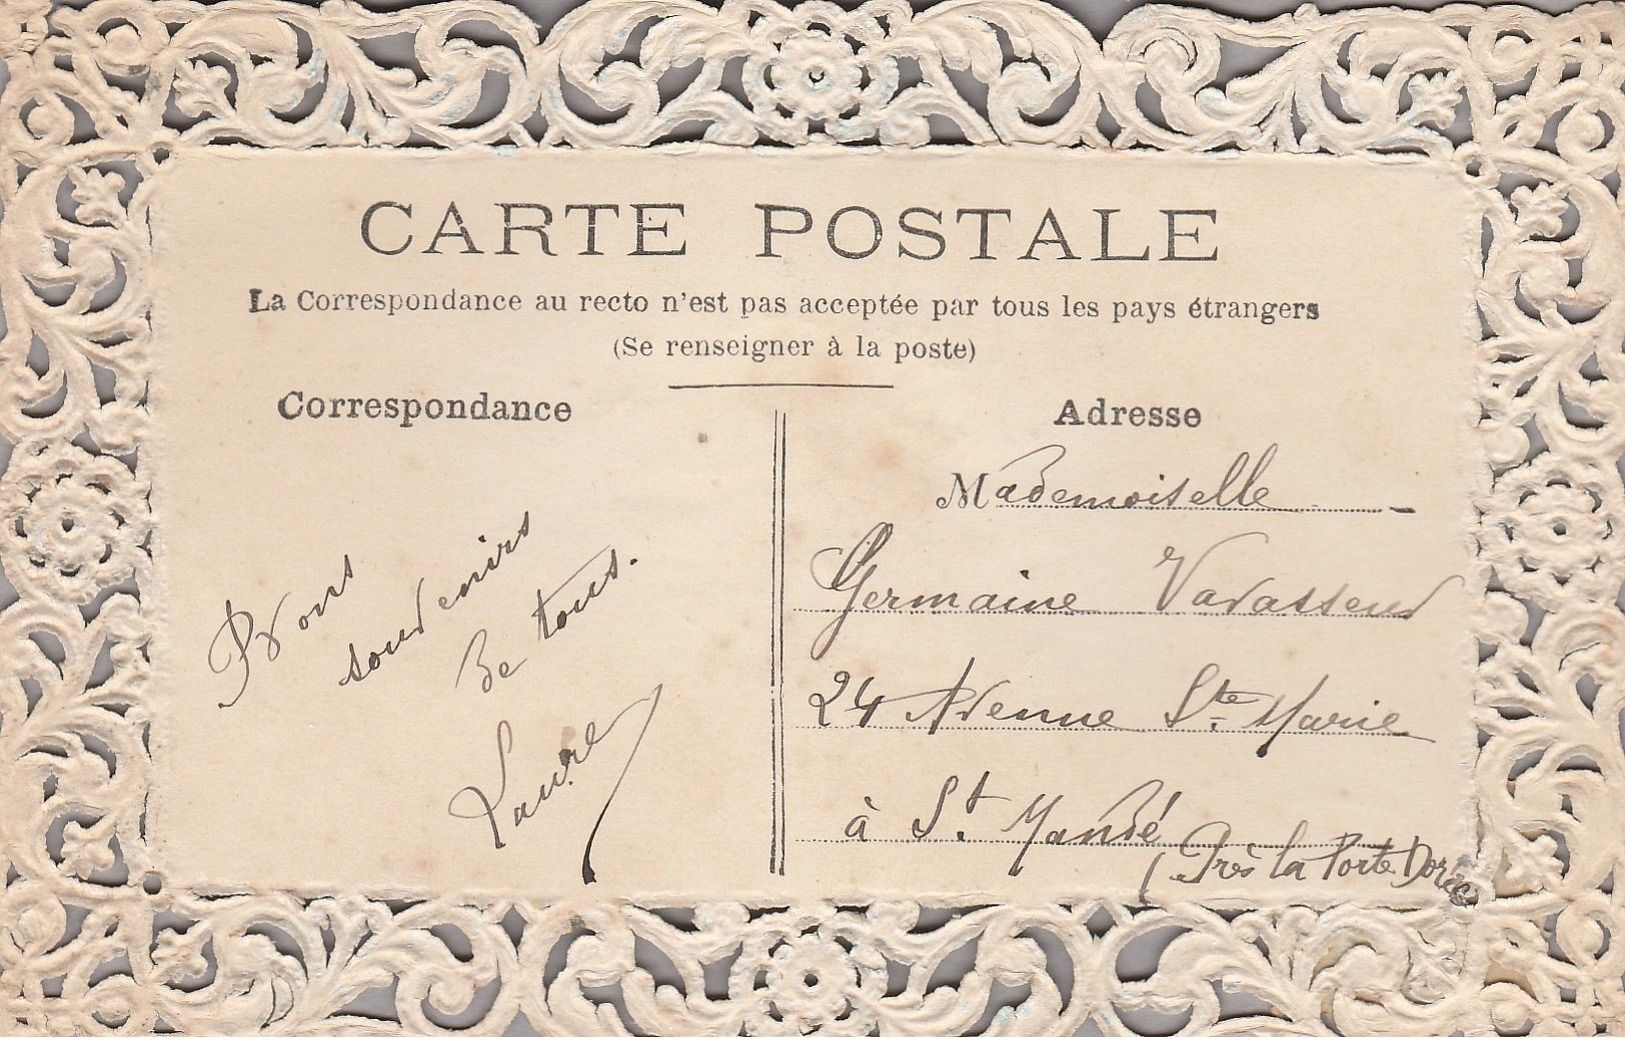 CARTE POSTALE
La Correspondance au recto n'est pas acceptée par tous les pays étrangers
(Se renseigner à la poste)
Correspondance
Bons
souvenirs
de tous.
Laure
Adresse
Mademoiselle
Germaine Vavasseur
24 Avenue Ste Marie
à St. Mandé
(Près la Porte Dorée